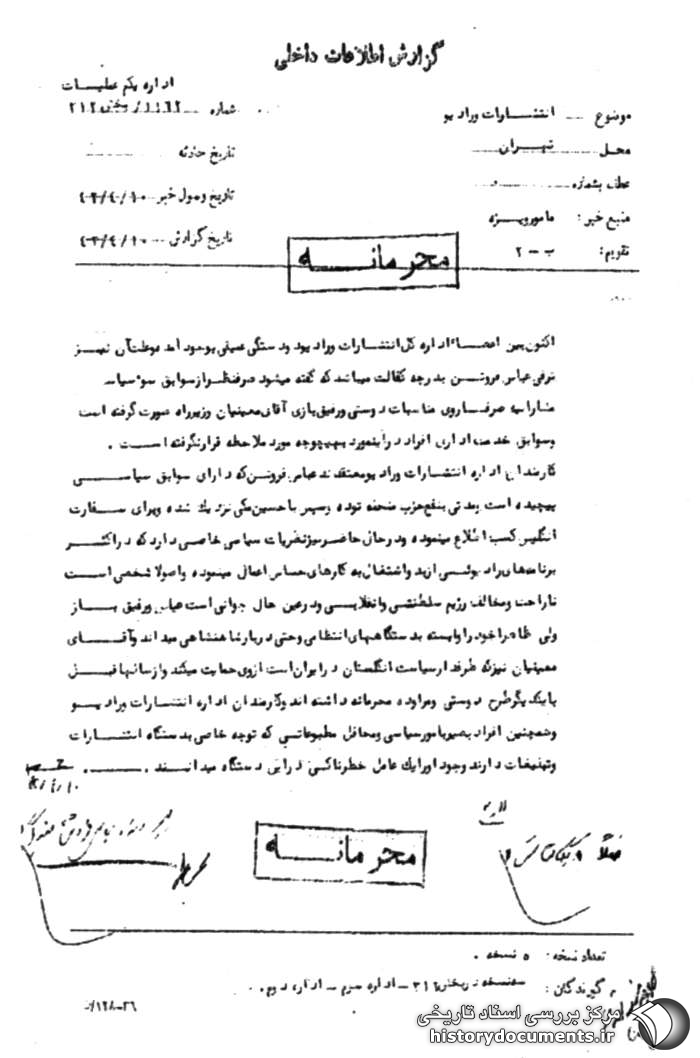 گزارش اطلاعات داخلی
اداره یکم عملیات
موضوع انتشارات ورادیو
شماره
محل تهران
تاریخ حادثه
عطف بشماره
تاریخ وصول خبر ۴۳/۴/۱۰
منبع خبر: مامورویژه
تاریخ گزارش ۴۳/۴/۱۰
تقویم: ب - ۲
محرمانه
اکنون بین اعضاء اداره کل انتشارات ورادیو دو دستگی عمیقی بوجود آمده وعلت آن نیز
ترفی عباس فروتن بدرجه کفالت میباشد که گفته میشود صرفنظر از سوابق سوء سیاسی
مشارالیه صرفا روی مناسبات دوستی ورفیق بازی آقای معینیان وزیر راه صورت گرفته است
وسوابق خدمت اداری افراد دراینمورد بهیچوجه مورد ملاحظه قرار نگرفته است .
کارمندان اداره انتشارات ورادیو معتقدند عباس فروتن که دارای سوابق سیاسی
پیچیده است ومدتی بنفع حزب منحله توده وسپس با حسین مکی نزدیک شده وبرای سفارت
انگلیس کسب اطلاع مینموده ودرحال حاضر نیز نظریات سیاسی خاصی دارد که در اکثر
برنامه‌های رادیوئی از ید واشتغال به کارهای حساس اعمال مینموده واصولا شخصی است
ناراحت ومخالف رژیم سلطنتی وانقلابی ودرعین حال جوانی است عیاش ورفیق باز
ولی ظاهرا خود را وابسته بدستگاههای انتظامی وحتی دربار شاهنشاهی میداند وآقای
معینیان نیز که طرفدار سیاست انگلستان در ایران است ازوی حمایت میکند واز سالها قبل
با یکدیگر طرح دوستی ومراوده محرمانه داشته اند وکارمندان اداره انتشارات ورادیو
وهمچنین افراد بصیر بامور سیاسی ومحافل مطبوعاتی که توجه خاصی بدستگاه انتشارات
وتبلیغات دارند وجود اورا یک عامل خطرناکی در این دستگاه میدانند .
محرمانه
تعداد نسخه: ۵ نسخه .
گیرندگان: سه نسخه بخش ۳۱۲ - اداره سوم - اداره دوم .
۲۶-۱۲۸
مرکز بررسی اسناد تاریخی
historydocuments.ir